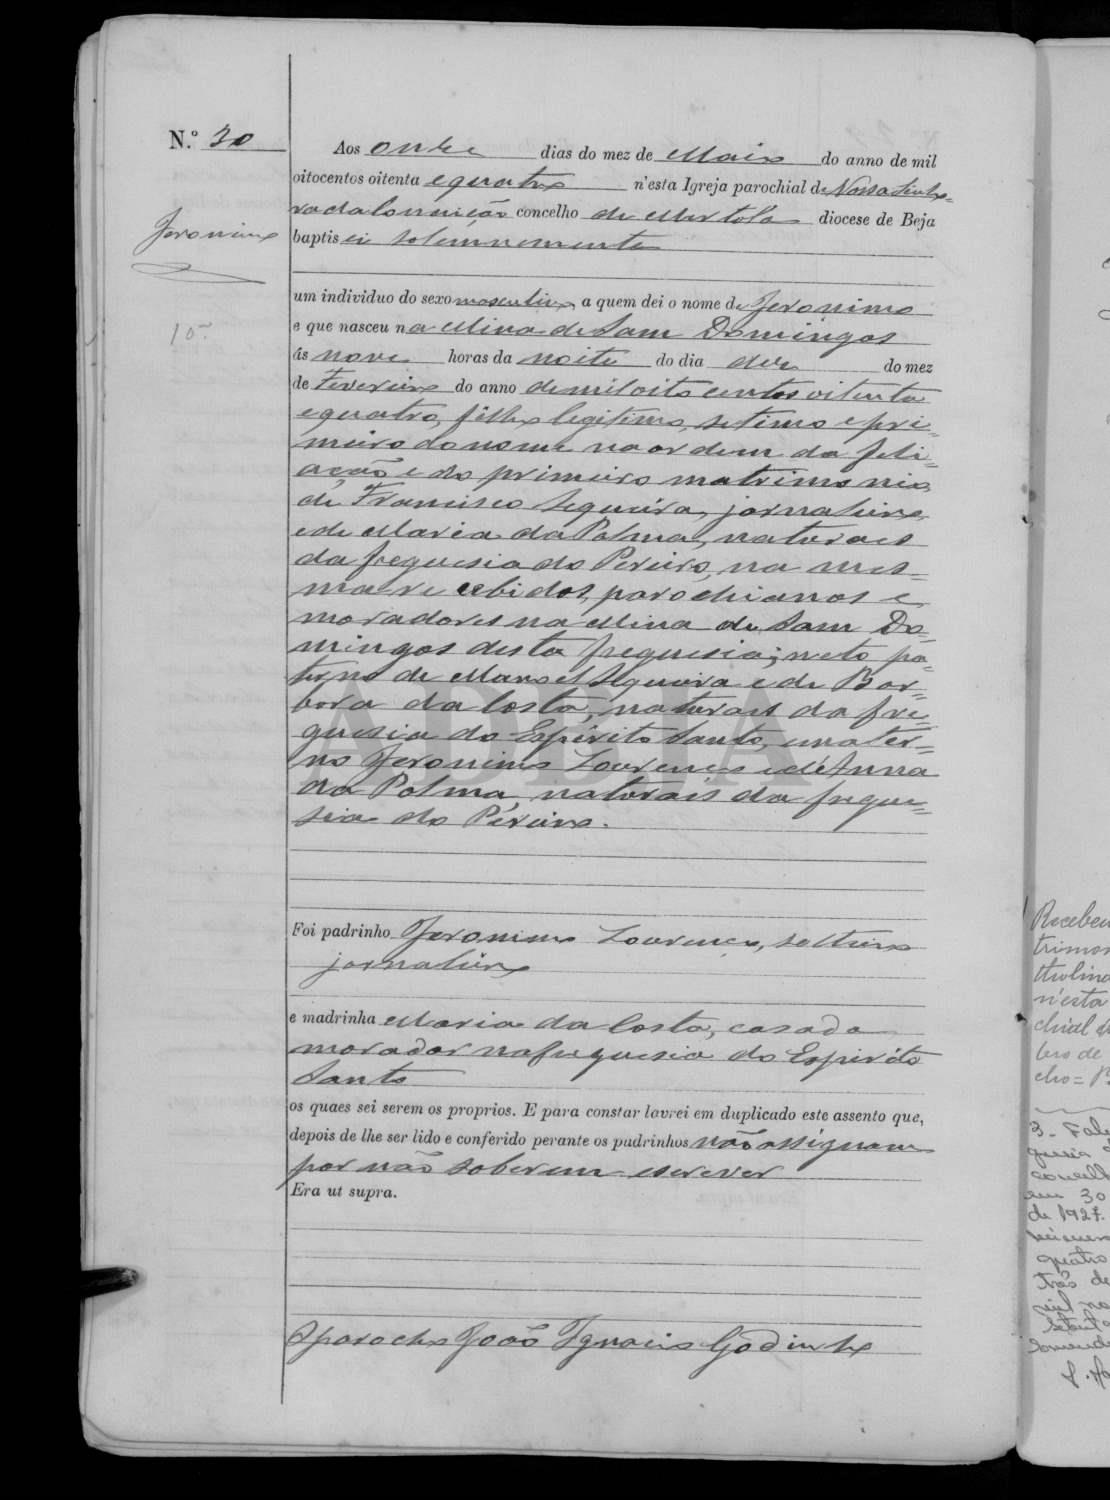 N.º 30
Aos onze dias do mez de Maio do anno de mil
oitocentos oitenta e quatro n'esta Igreja parochial de Nossa Senho=
ra da Conceição concelho de Mertola diocese de Beja
baptisei solemnemente
Jeronimo
um individuo do sexo masculino, a quem dei o nome de Jeronimo
e que nasceu na Mina de Sam Domingos
ás nove horas da noite do dia dez do mez
de Fevereiro do anno de mil oito centos oitenta
e quatro, filho legitimo, setimo e pri=
meiro do nome na ordem da fili=
ação e do primeiro matrimonio,
de Francisco Sequeira, jornaleiro,
e de Maria da Palma, naturaes
da freguesia do Pereiro, na mes=
ma recebidos, parochianos e
moradores na Mina de Sam Do=
mingos desta freguesia; neto pa=
terno de Manoel Sequeira e de Bar=
bora da Costa, naturaes da fre=
guesia do Espirito Santo, e mater=
no Jeronimo Lourenço e de Anna
da Palma, naturais da fregue=
sia do Pereiro.
ADBJA
Foi padrinho Jeronimo Lourenço, solteiro
jornaleiro
e madrinha Maria da Costa, casada
morador na freguesia do Espirito
Santo
os quaes sei serem os proprios. E para constar lavrei em duplicado este assento que,
depois de lhe ser lido e conferido perante os padrinhos não assignam
por não saberem escrever
Era ut supra.
O parocho João Ignacio Godinho
Recebeu
trimon
n'esta
chial d
bro de
3 - Fale
em 30
de 1927.
quatro
três de